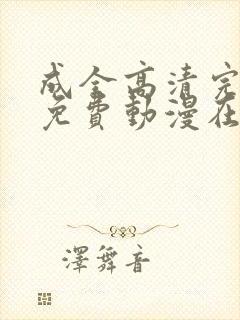 成全高清完
免費動漫在
澤舞音